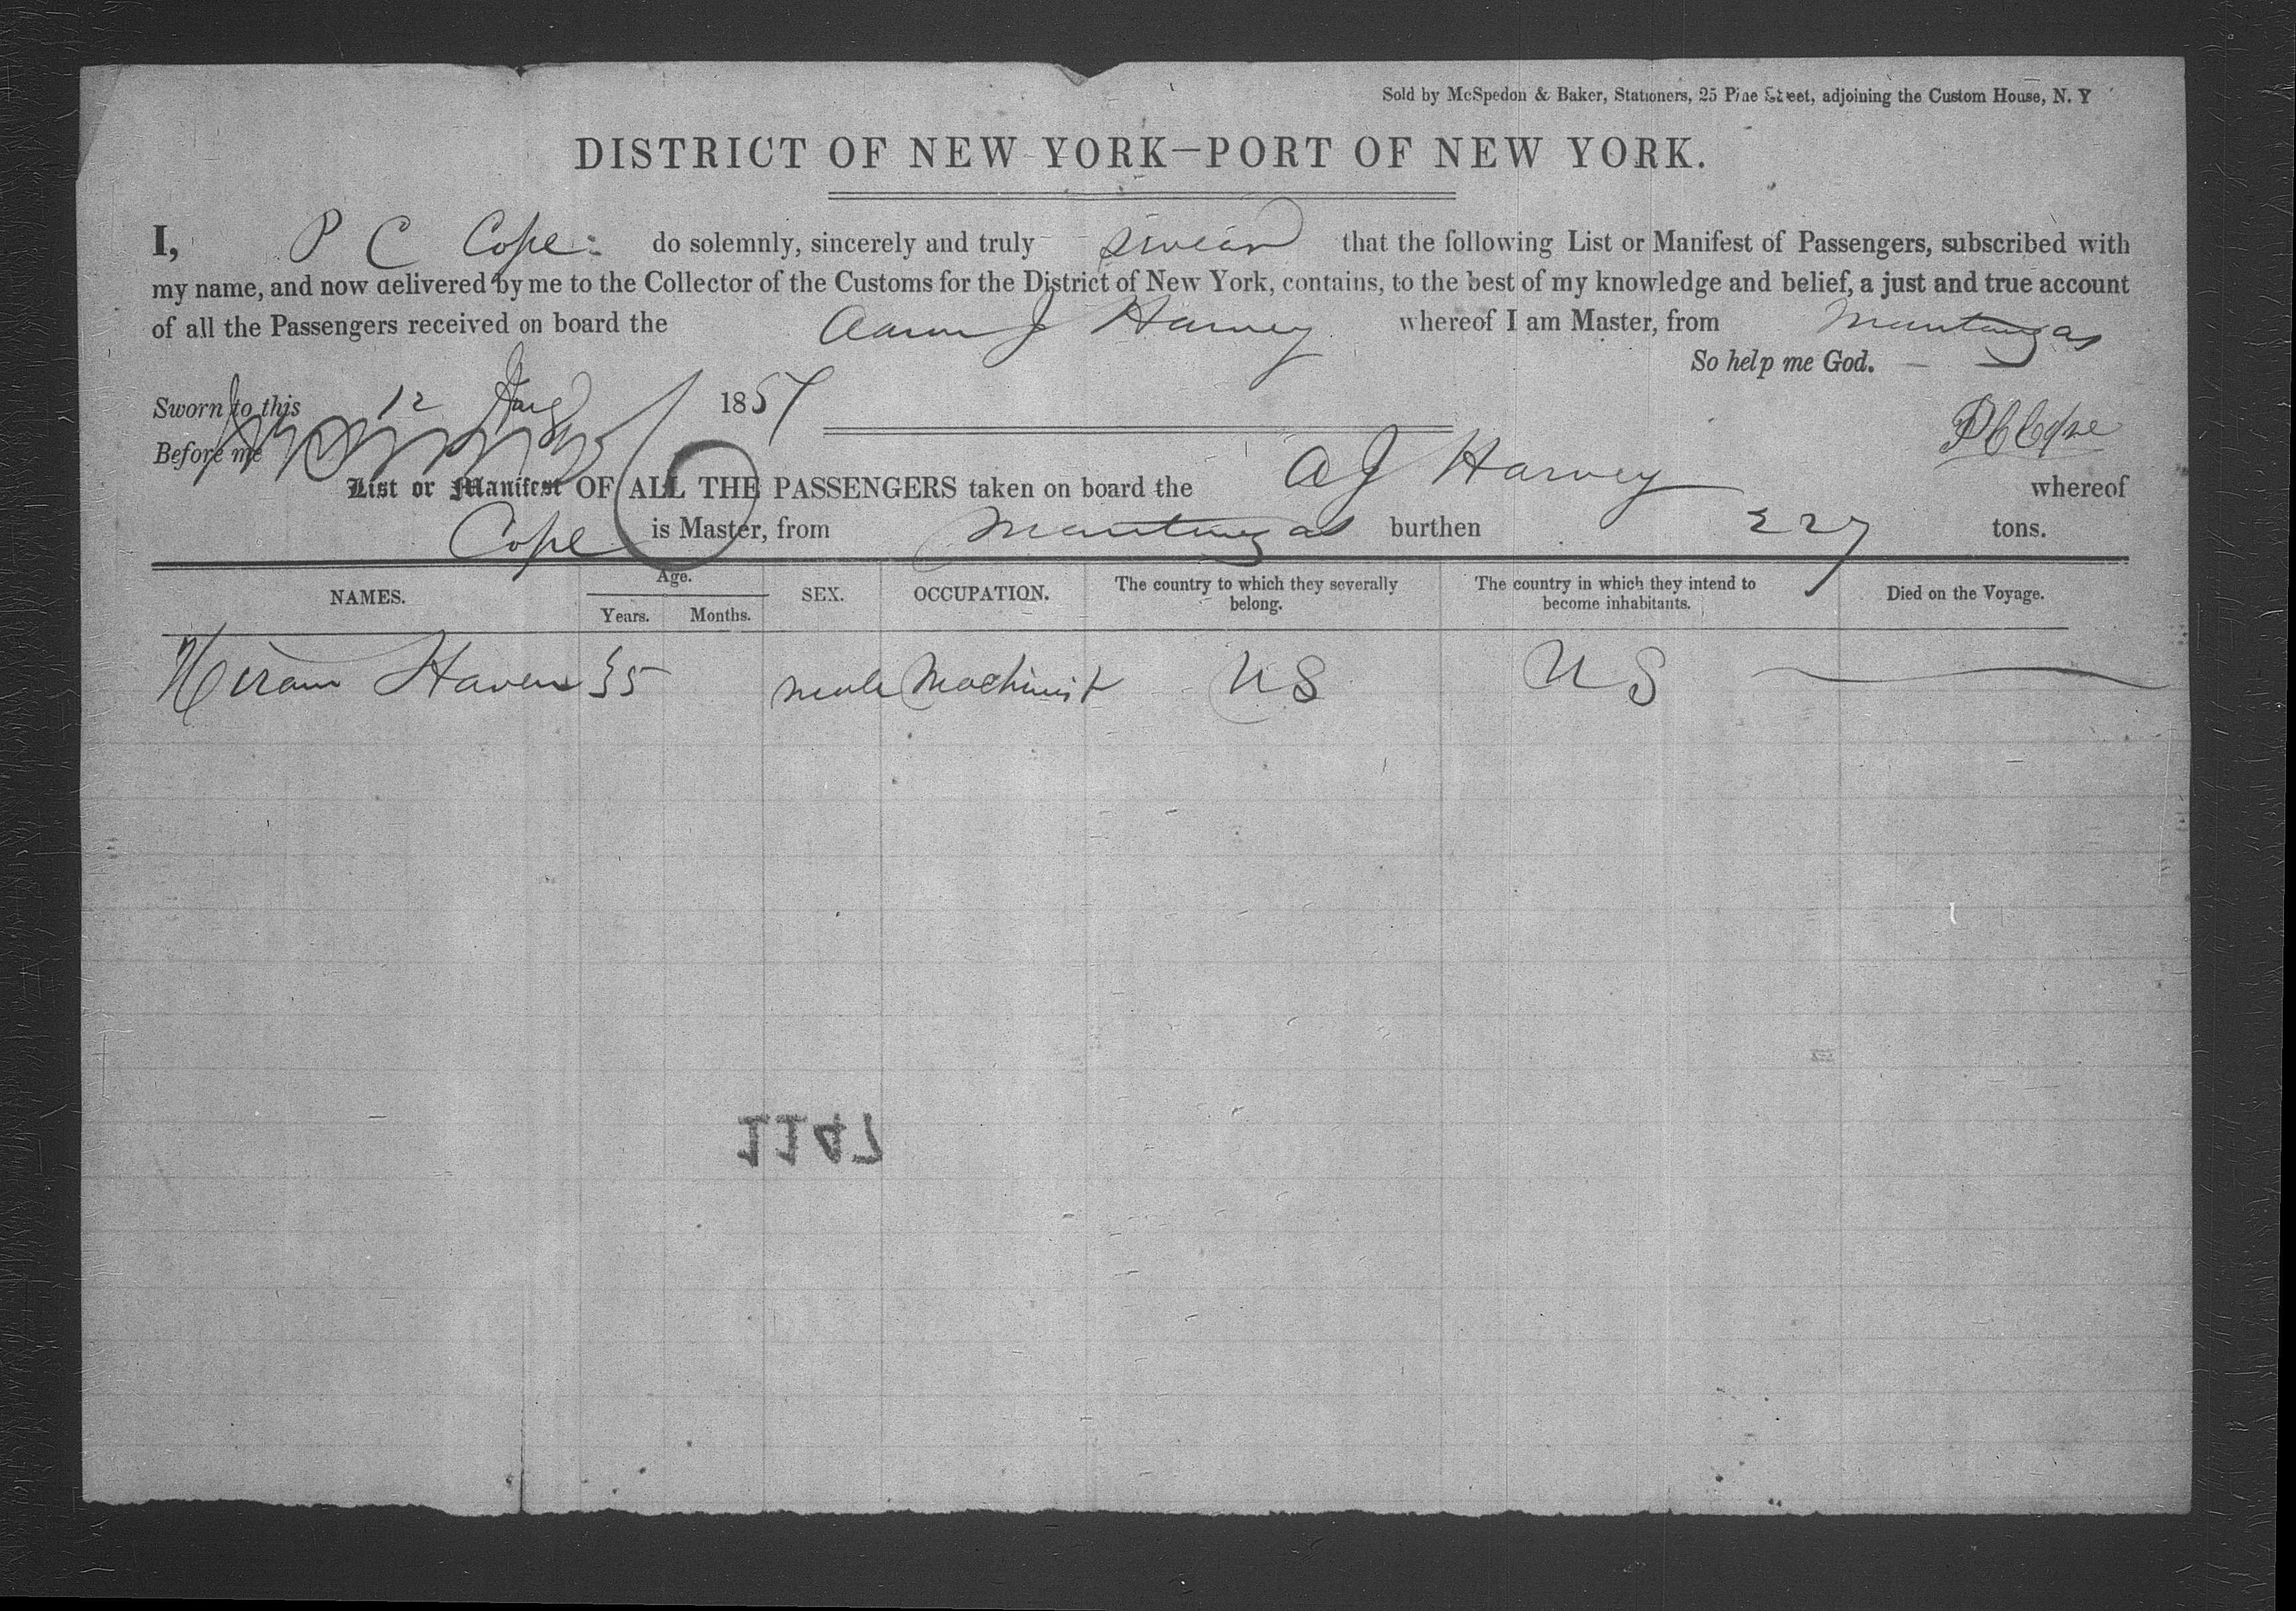 Sold by McSpedon & Baker, Stationers, 25 Pine Street, adjoining the Custom House, N. Y
DISTRICT OF NEW YORK—PORT OF NEW YORK.
I, P C Cope do solemnly, sincerely and truly swear that the following List or Manifest of Passengers, subscribed with
my name, and now delivered by me to the Collector of the Customs for the District of New York, contains, to the best of my knowledge and belief, a just and true account
of all the Passengers received on board the Aaron J Harvey whereof I am Master, from Mantanzas
So help me God.
Sworn to this 12 Aug 1857
Before me
P C Cope
List or Manifest OF ALL THE PASSENGERS taken on board the A J Harvey whereof
Cope is Master, from Mantanzas burthen 227 tons.
NAMES. Age. Years. Months. SEX. OCCUPATION. The country to which they severally belong. The country in which they intend to become inhabitants. Died on the Voyage.
Hiram Haven 35 male Machinist US US
1147